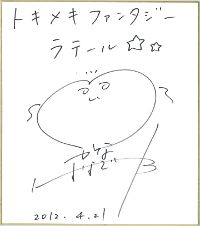 トキメキファンタジー
ラテール☆☆
2012. 4.21